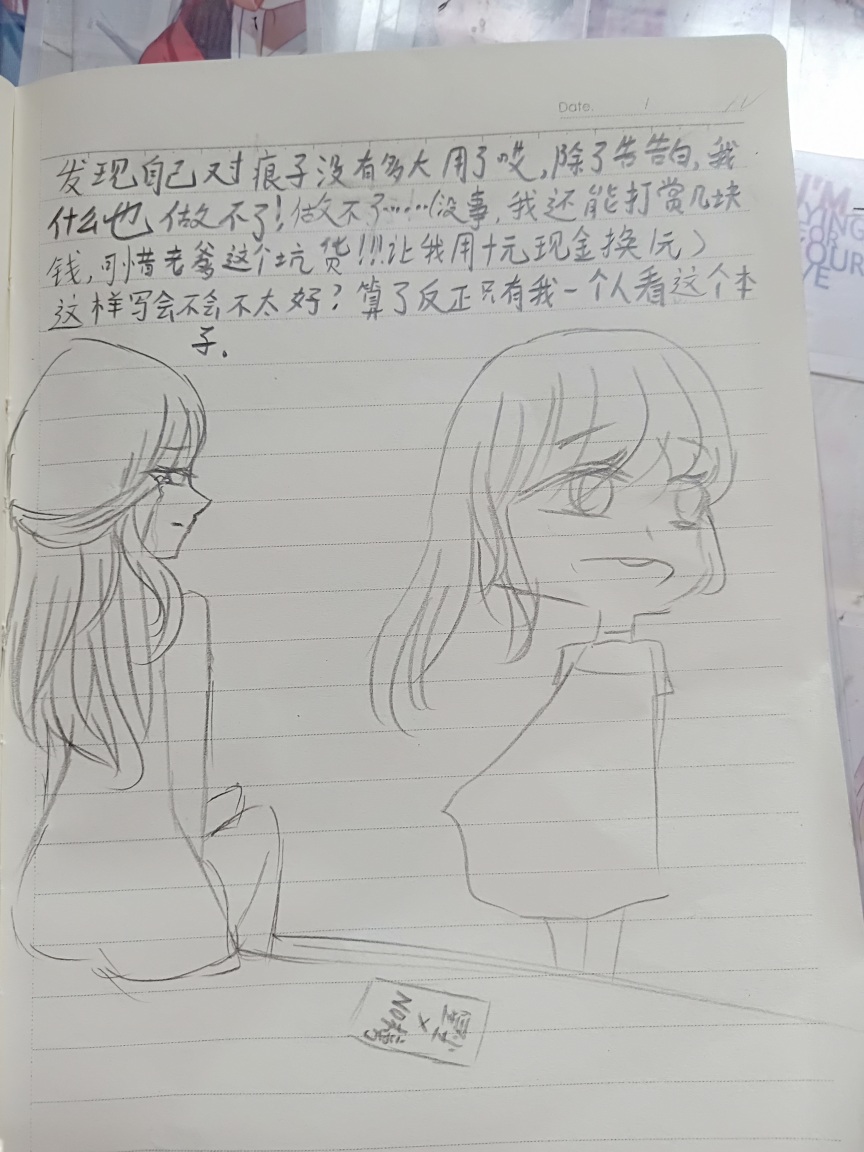 Date.
发现自己对痕子没有多大用了哎,除了告告白,我
什么也做不了!做不了……(没事,我还能打赏几块
钱,可惜老爹这个坑货!!!让我用十元现金换1元)
这样写会不会不太好?算了反正只有我一个人看这个本
子.
I'M
YING
FOR
YOUR
VE
NO
×